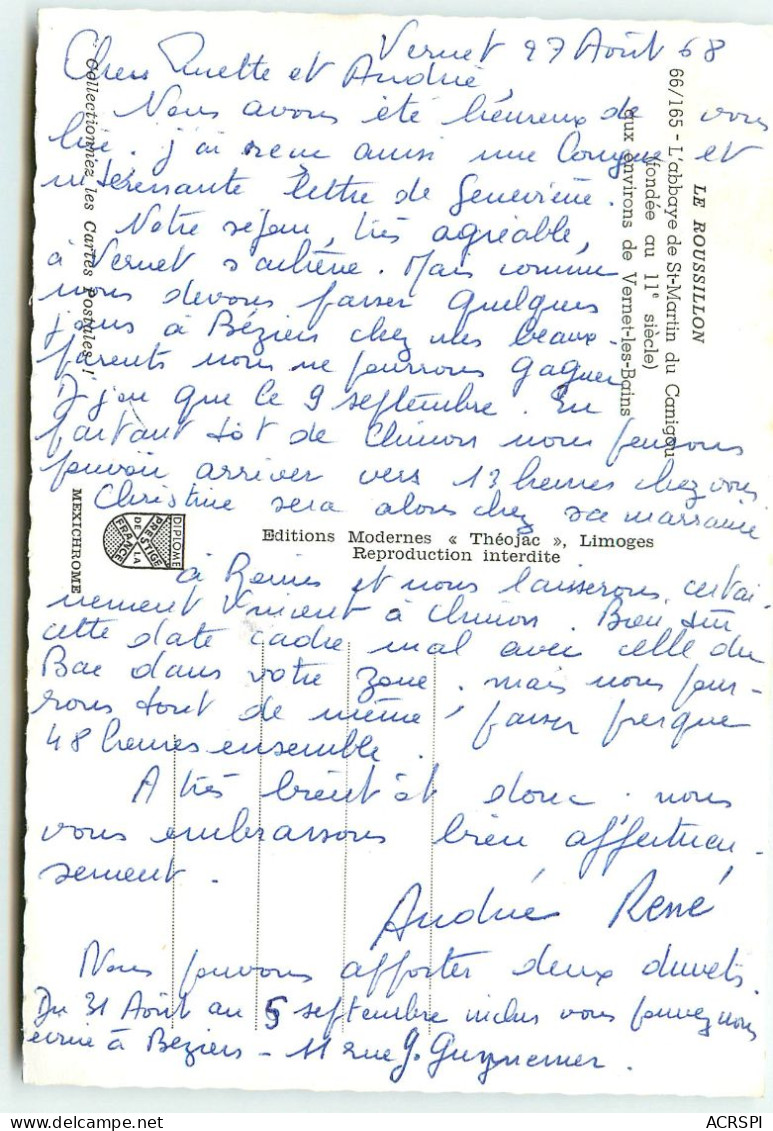 Vernet 27 Août 68
Chers et André,
Nous avons été heureux de vous
lire. J'ai reçu aussi une longue et
intéressante lettre de Geneviève.
Notre séjour, très agréable,
à Vernet s'achève. Mais comme
nous devons passer quelques
jours à Béziers chez mes beaux-
parents nous ne pourrons gagner
que le 9 septembre. En
partant tôt de Chinon nous pensons
pouvoir arriver vers 13 heures chez vous.
Christine sera alors chez sa marraine
à Reims et nous laisserons certai-
nement Vincent à Chinon. Bien sûr
cette date cadre mal avec celle du
Bac dans votre zone. mais nous pour-
rons tout de même passer presque
48 heures ensemble.
A très bientôt donc. nous
vous embrassons bien affectueu-
sement.
Andrée René
Nous pouvons apporter deux duvets.
Du 31 Août au 5 septembre inclus vous pouvez nous
écrire à Béziers - 11 rue G. Guynemer.
LE ROUSSILLON
66/165 - L'abbaye de St-Martin du Canigou
(fondée au 11e siècle)
aux environs de Vernet-les-Bains
Collectionnez les Cartes Postales !
Editions Modernes « Théojac », Limoges
Reproduction interdite
MEXICHROME
DIPLOME
PRESTIGE
DE LA
FRANCE
ACRSPI